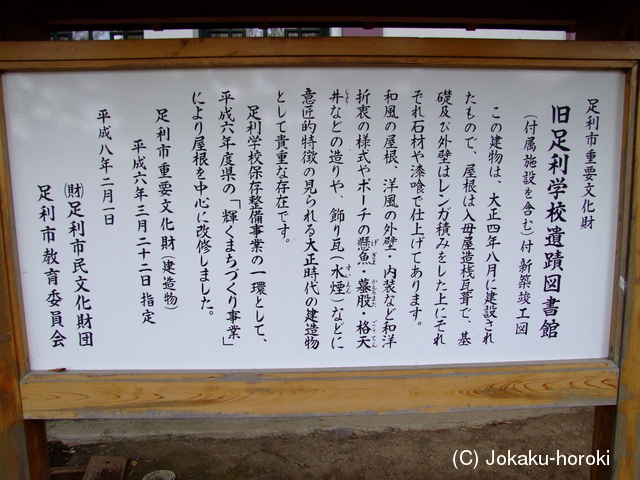 足利市重要文化財
旧足利学校遺蹟図書館
(付属施設を含む)付 新築竣工図
この建物は、大正四年八月に建設され
たもので、屋根は入母屋造桟瓦葺で、基
礎及び外壁はレンガ積みをした上にそれ
ぞれ石材や漆喰で仕上げてあります。
和風の屋根、洋風の外壁・内装など和洋
折衷の様式やポーチの懸魚・蟇股・格天
井などの造りや、飾り瓦(水煙)などに
意匠的特徴の見られる大正時代の建造物
として貴重な存在です。
足利学校保存整備事業の一環として、
平成六年度県の「輝くまちづくり事業」
により屋根を中心に改修しました。
足利市重要文化財(建造物)
平成六年三月二十二日 指定
平成八年二月一日
(財)足利市民文化財団
足利市教育委員会
(C) Jokaku-horoki